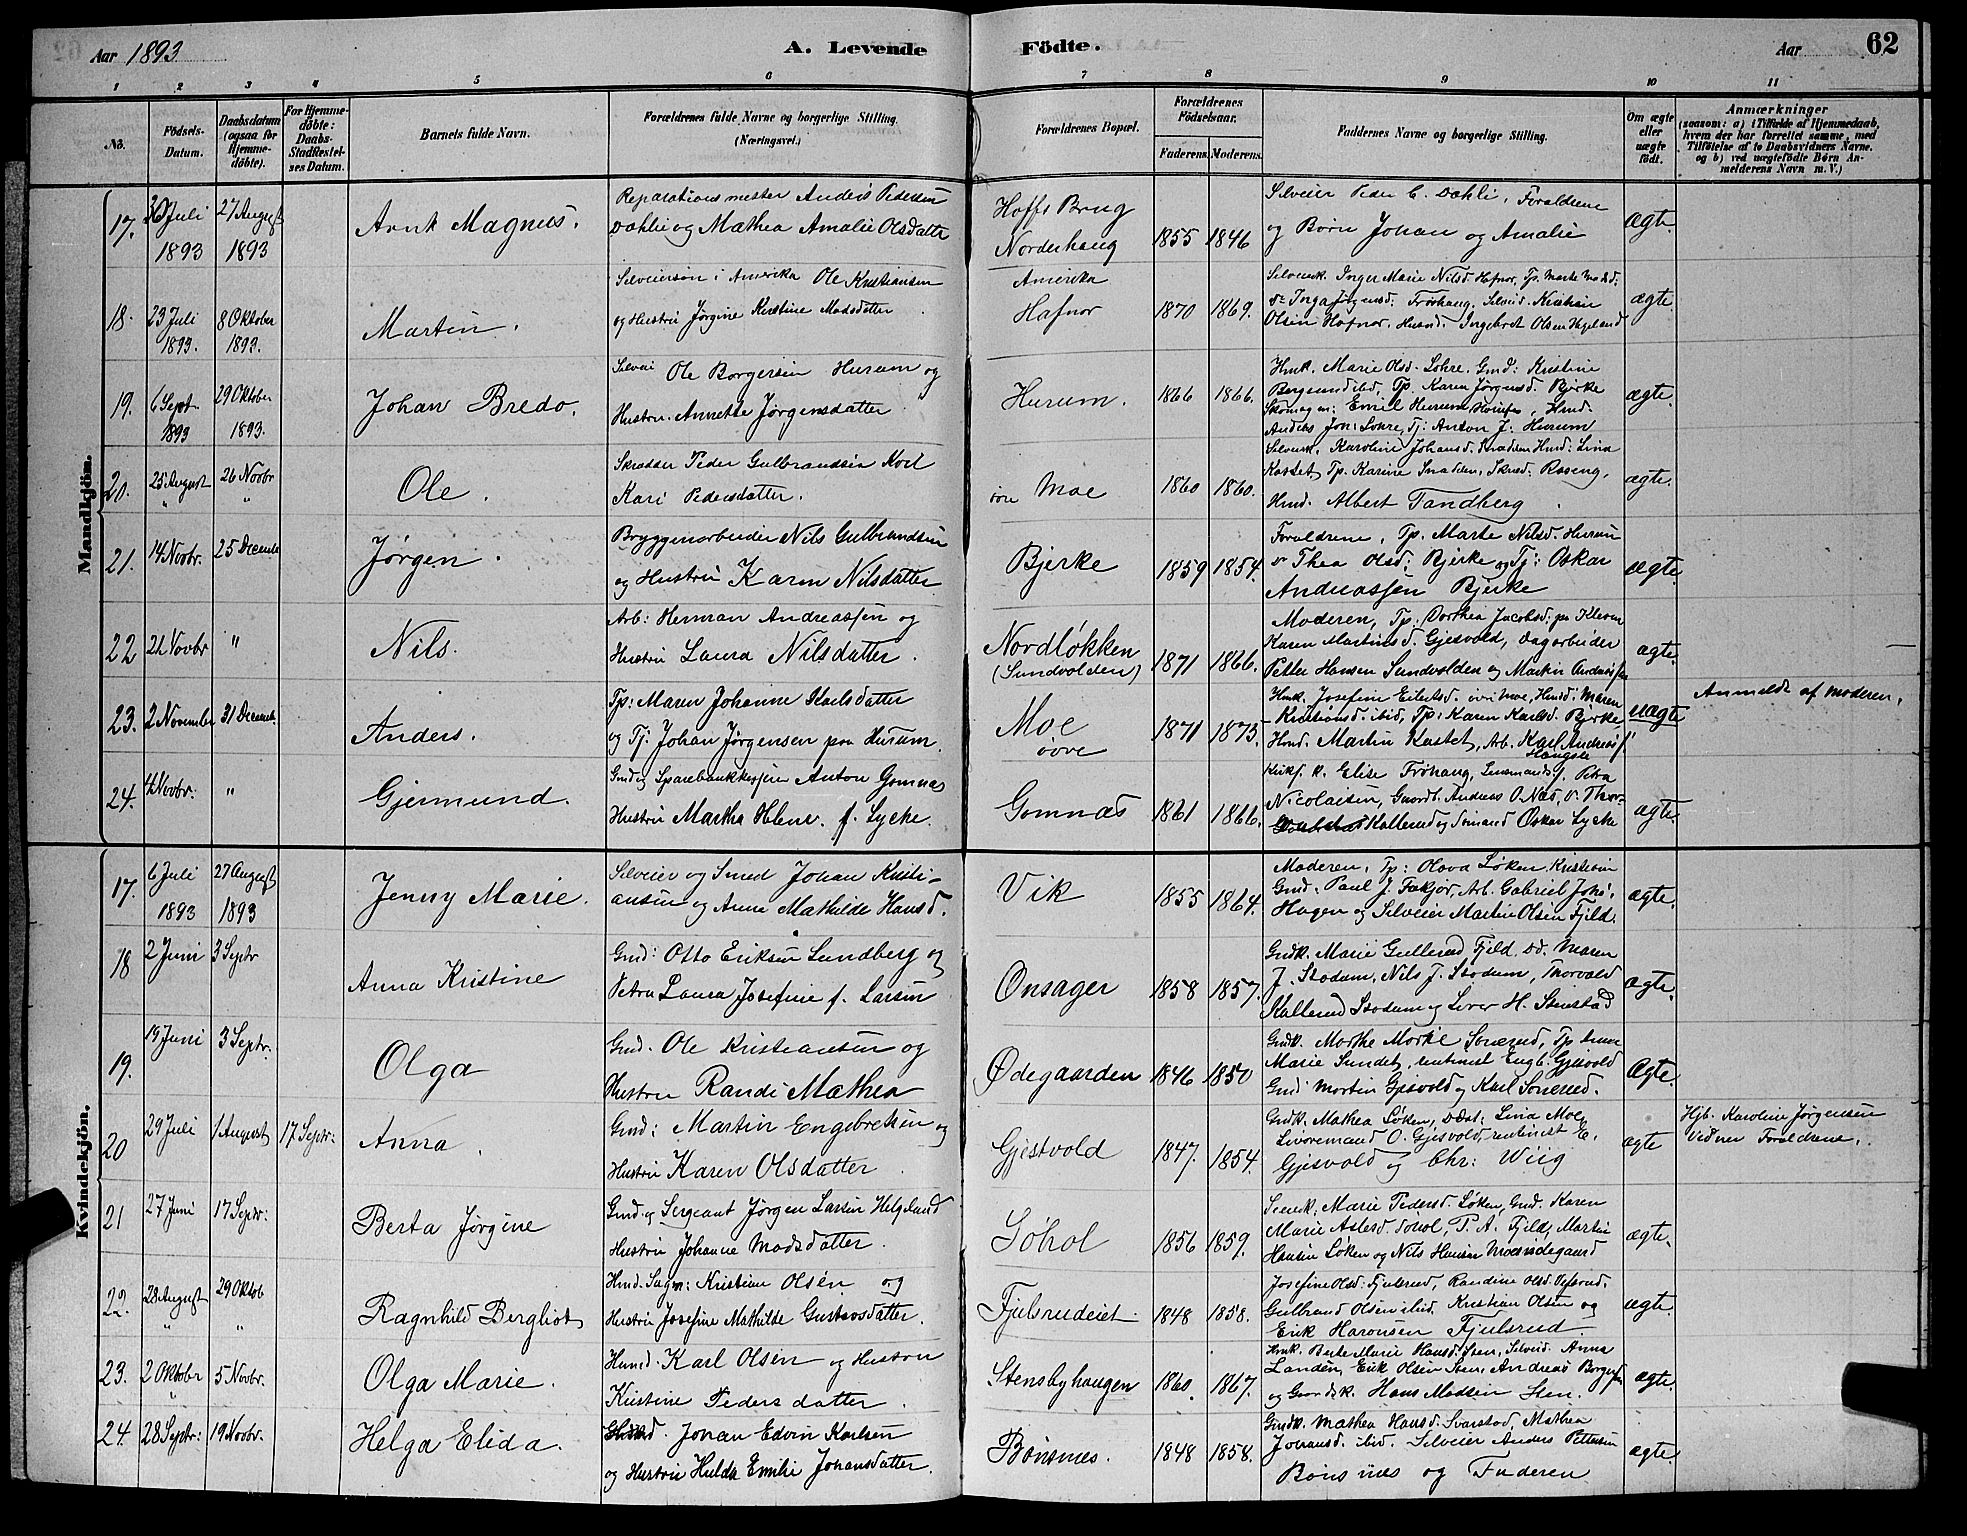 Aar 1893
A. Levende Födte.
Aar
62
1 2 3 4 5 6 7 8 9 10 11
No. Födsels-Datum. Daabsdatum (ogsaa for Hjemmedöbte). For Hjemmedöbte: Daabs-Stadfæstelses Datum. Barnets fulde Navn. Forældrenes fulde Navne og borgerlige Stilling. (Næringsvei.) Forældrenes Bopæl. Forældrenes Födselsaar. Faderens. Moderens. Faddernes Navne og borgerlige Stilling. Om ægte eller uægte födt. Anmærkninger (saasom: a) i Tilfælde af Hjemmedaab, hvem der har forrettet samme, med Tilföielse af to Daabsvidners Navne. og b) ved uægtefödte Börn Anmelderens Navn m. V.)
Mandkjön.
17. 30 Juli 1893 27 August 1893 Arnt Magnus. Reparationsmester Anders Pedersen
Dahlie og Mathea Amalie Olsdatter
Hoffs Brug
Norderhaug 1855 1846
Selveier Peder C. Dahli, Forældrene
og Børn Johan og Amalie ægte
18. 23 Juli 1893. 8 Oktober 1893. Martin. Selveiersøn i Amerika Ole Kristiansen
og Hustru Jørgine Kirstine Madsdatter
Amerika
Hafnor 1870 1869.
Selveierk. Inger Marie Nilsd. Hafnor, Tp. Marte Madsd.
Inga Jørgensd. Frøhaug, Selveid. Kristian
Olsen Hafnor, Husmd. Ingebret Olsen Hegeland ægte
19. 6 Sept 1893 29 Oktober 1893. Johan Bredo. Selveier Ole Borgersen Hurum og
Hustru Annette Jørgensdatter
Hurum. 1866 1866.
Hmk. Marie Olsd. Lohre, Gmd: Kristine
Borgersend ibid, Tp. Karen Jørgensd. Bjerke
Skomager: Emil Hurum Honefos, Hmd.
Anders Joh: Lohre, Tj: Anton J. Hurum ægte
20. 25 August " 26 Novbr " Ole. Skrædder Peder Gulbrandsen Moe
Kari Pedersdatter.
Moe 1860 1860.
Selveierk. Karoline Johansd. Snadden Hmd: Lina
Kastet Tp. Karine Snadden, Skræd. Roseng,
Hmd. Albert Tandberg ægte.
21. 14 Novbr. 25 December Jørgen. Bryggeriarbeider Nils Gulbrandsen
og Hustru Karen Nilsdatter
Bjerke 1859 1854.
Forældrene, Tp. Marte Nilsd. Hurum
Thea Olsd: Bjerke og Tj: Oskar
Andreassen Bjerke ægte
22 21 Novbr " Nils. Arb: Herman Andreassen og
Hustru Laura Nilsdatter.
Nordløkken
(Sundvolden) 1871 1866.
Moderen, Tp: Dorthea Jacobsd. pr Kleven
Karen Martinsd. Gjesvold, Dagarbeider
Petter Hansen Sundvolden og Martin Andreassen ægte.
23. 2 November 31 December Anders. Tp: Maren Johanne Karlsdatter
og Tj: Johan Jørgensen paa Hurum.
Moe
øvre 1871 1873
Hmk. Josefine Eilertsd. øvre Moe, Hmd: Maren
Kristiansd. ibid, Tp: Karen Karlsd. Bjerke
Hmd. Martin Kastet, Arb. Karl Andreasf
Haugsle uægte Anmeldt af Moderen.
24. 4 Novbr: " Gjermund. Gmd og Sparebankkasserer Anton Gomnæs
Hustru Martha Helene. f. Lycke.
Gomnæs 1861 1866.
Kirks. k. Elise Frøhaug, Lensmandsf. Petra
Nicolaisen, Gaardb. Andreas O. Næs, Thor-
Kallerud og Sømand Oskar Lycke ægte.
Kvindekjön.
17. 6 Juli 1893 27 August 1893 Jenny Marie. Selveier og Smed Johan Kristi-
ansen og Anne Mathilde Hansd.
Vik 1855 1864.
Moderen, Tp: Olava Løken Kristian
Gmd. Paul J. Fekjær, Arb. Gabriel Johs.
Hagen og Selveier Martin Olsen Fjeld. ægte.
18 2 Juni 3 Septr Anna Kristine Gmd: Otto Eriksen Sundberg og
Petra Laura Josefine f. Larsen
Onsager 1858 1857.
Gmdk. Marie Gullerud Fjeld, Dd. Maren
J. Stadum, Nils J. Stadum, Thorvald
Kallerud Stadum og Iver H. Stenstad ægte.
19. 19 Juni 3 Septr. Olga Gmd. Ole Kristiansen og
Hustru Randi Mathea
Ødegaarden 1846 1850
Gmdk. Marthe Marie Sørerud, Tp Anne
Marie Sundet, rentenist Engb. Gjesvold
Gmd. Martin Gjesvold og Karl Sonerud. ægte.
20 29 Juli 1 August 17 Septr: Anna. Gmd: Martin Engebretsen og
Hustru Karen Olsdatter
Gjestvold 1847. 1854.
Gmdk. Mathea Løken, Dæst. Lina Moe,
O. Gjesvold, rentenist E.
Gjesvold og Chr: Wiig ægte Hjb. Karoline Jørgensen
Vidner Forældrene.
21 27 Juni 17 Septr: Berta Jørgine Gmd. og Sergeant Jørgen Larsen Helgeland
Hustru Johanne Madsdatter.
Søhol 1856 1859.
Marie Pedersd. Løken, Gmd. Karen
Marie Aslesd. Søhol, P. A. Fjeld, Martin
Hansen Løken og Nils Hansen Moesødegaard ægte.
22. 28 August " 29 Oktob " Ragnhild Bergliot Hmd. Sagm: Kristian Olsen og
Hustru Josefine Mathilde Gustavsdatter.
Fjulsrudeiet 1848 1858.
Josefine Olsd: Fjulsrud, Randine Olsd.
Gulbrand Olsen ibid. Kristian Olsen og
Erik Haronsen Fjulsrud. ægte.
23. 2 Oktober " 5 Novbr. Olga Marie. Husmd. Karl Olsen og Hustru
Kristine Pedersdatter.
Stensbyhaugen 1860. 1867.
Hmk. Berte Marie Hansd. Sten, Selveid. Anna
Landén, Erik Olsen Sten, Andreas Borgers
og Gaardsk. Hans Madsen Sten. ægte.
24. 28 Septr: 19 Novbr. Helga Elida. Johan Edvin Karlsen
og Hustru Hulda Emilie Johansdatter.
Bønsnes. 1848 1858.
Gmdk. Mathea Hansd. Svarstad, Mathea
Johansd. ibid. Selveier Anders Pettersen
Bønsnes og Faderen ægte.